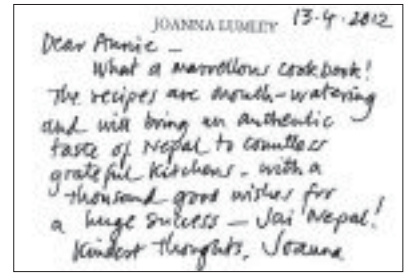 JOANNA LUMLEY 13.4.2012
Dear Annie –
What a marvellous cookbook!
The recipes are mouth-watering
and will bring an authentic
taste of Nepal to countless
grateful kitchens – with a
thousand good wishes for
a huge success – Jai Nepal!
Kindest thoughts, Joanna